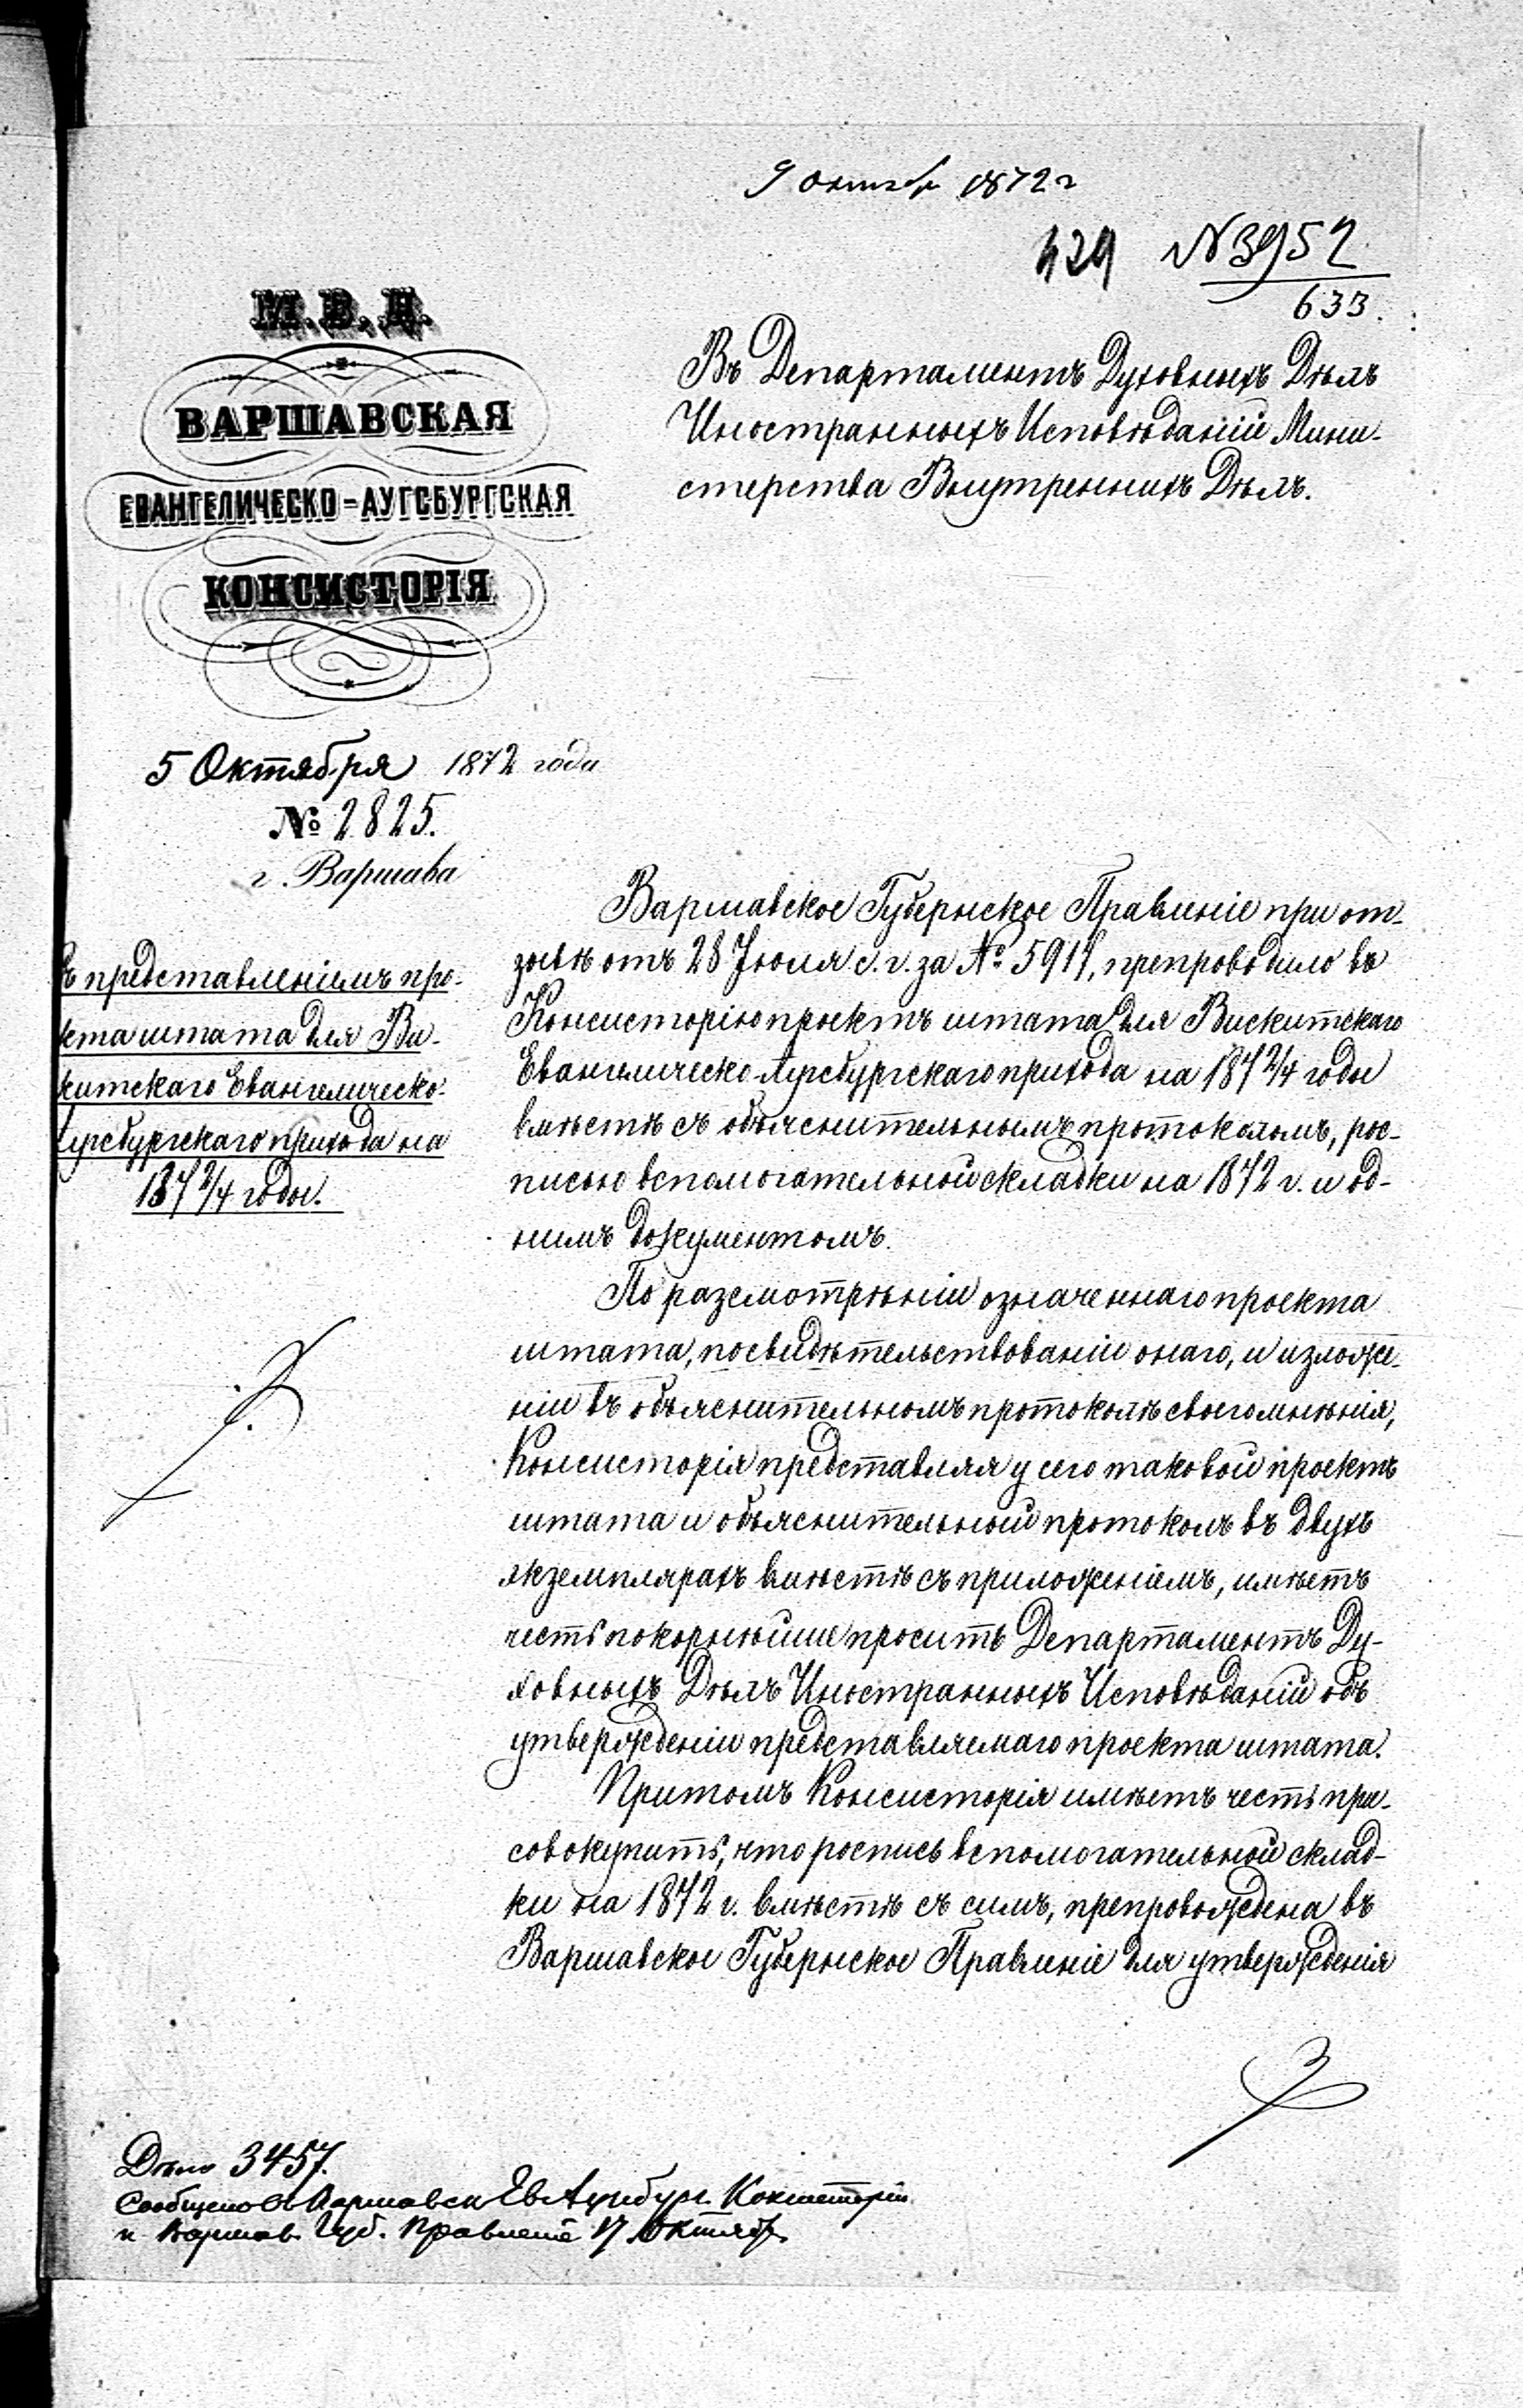 9 октября 1872 г
429 N 3952
633.
М. В. Д.
ВАРШАВСКАЯ
ЕВАНГЕЛИЧЕСКО-АУГСБУРГСКАЯ
КОНСИСТОРІЯ
5 Октября 1872 года
№ 2825.
г. Варшава
Въ Департаментъ Духовныхъ Дѣлъ
Иностранныхъ Исповѣданій Мини-
стерства Внутреннихъ Дѣлъ.
ъ представленіемъ про-
кта штата для Ви-
китскаго Евангелическо-
Аугсбургскаго прихода на
187 2/4 годы.
Варшавское Губернское Правленіе при от-
зывѣ отъ 28 Іюля с. г. за №. 5911, препроводило въ
Консисторію проектъ штата для Вискитскаго
Евангелическо-Аугсбургскаго прихода на 187 2/4 годы
вмѣстѣ съ объяснительнымъ протоколомъ, рос-
писью вспомогательной складки на 1872 г. и од-
нимъ документомъ.
По разсмотрѣніи означеннаго проекта
штата, посвидѣтельствованіи онаго, и изложе-
ніи въ объяснительномъ протоколѣ своего мнѣнія,
Консисторія представляя у сего таковой проектъ
штата и объяснительный протоколъ въ двухъ
экземплярахъ вмѣстѣ съ приложеніемъ, имѣетъ
честь покорнѣйше просить Департаментъ Ду-
ховныхъ Дѣлъ Иностранныхъ Исповѣданій объ
утвержденіи представляемаго проекта штата.
Притомъ Консисторія имѣетъ честь при-
совокупить, что роспись вспомогательной склад-
ки на 1872 г. вмѣстѣ съ симъ, препровождена въ
Варшавское Губернское Правленіе для утвержденія
Дѣло 3457.
Сообщено В Варшавск Ев Аугсбург. Консисторіи
и Варшав. Губ. Правленіе 17 Октября